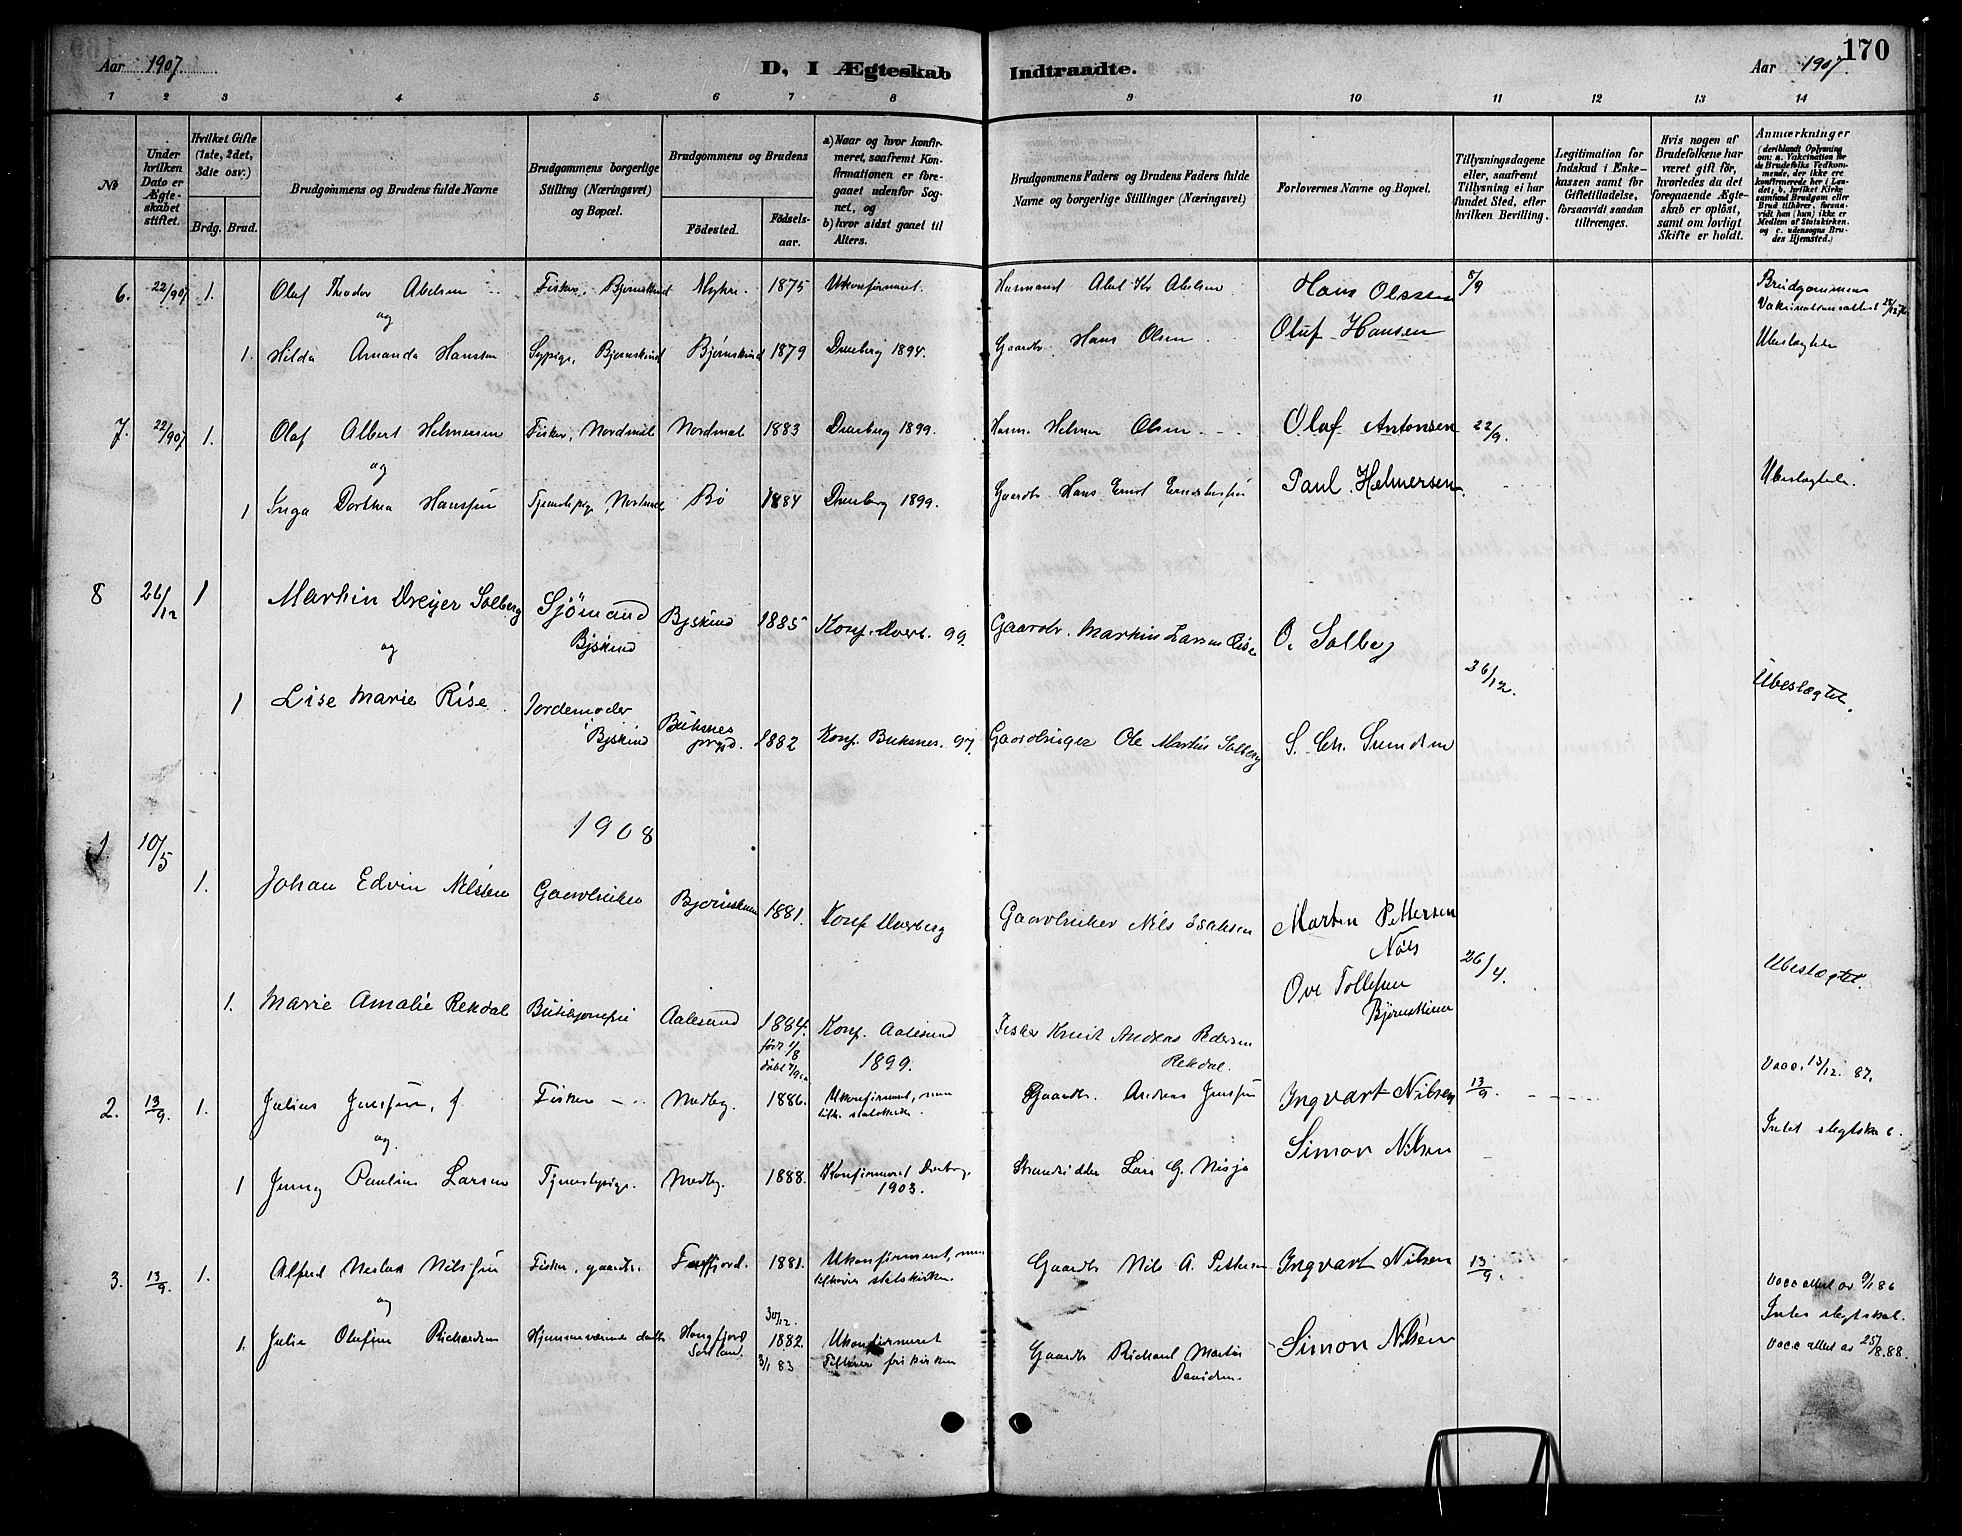 170
Aar 1907. D, I Ægteskab Indtraadte. Aar 1907.
1 2 3 4 5 6 7 8 9 10 11 12 13 14
No
Under hvilken Dato er Ægteskabet stiftet.
Hvilket Gifte (1ste, 2det, 3die osv.)
Brdg. Brud.
Brudgommens og Brudens fulde Navne
Brudgommens borgerlige Stilling (Næringsvei) og Bopæl.
Brudgommens og Brudens
Fødested. Fødselsaar.
a) Naar og hvor konfirmeret, saafremt Konfirmationen er foregaaet udenfor Sognet, og
b) hvor sidst gaaet til Alters.
Brudgommens Faders og Brudens Faders fulde Navne og borgerlige Stillinger (Næringsvei)
Forlovernes Navne og Bopæl.
Tillysningsdagene eller, saafremt Tillysning ei har fundet Sted, efter hvilken Bevilling.
Legitimation for Indskud i Enkekassen samt for Giftetilladelse, forsaavidt saadan tiltrænges.
Hvis nogen af Brudefolkene har været gift før, hvorledes da det foregaaende Ægteskab er opløst, samt om lovligt Skifte er holdt.
Anmærkninger (deriblandt Oplysning om: a. Vakcination for de Brudefolks Vedkommende, der ikke ere konfirmerede her i Landet; b. hvilket Kirkesamfund Brudgom eller Brud tilhører, forsaavidt han (hun) ikke er Medlem af Statskirken, og c. udensogns Brudes Hjemsted.)
6. 22/9 07 1. Olaf Theodor Abelsen Fisker, Bjørnskind 1875 Ukonfirmeret. Husmand Abel Kr Abelsen Hans Olssen 8/9 Brudgommens
og
1. Hilda Amanda Hanssen Sypige, Bjørnskind Bjørnskind 1879 Dverberg 1894. Gaardbr. Hans Olsen Oluf Hansen Ubeslægtede
7. 22/9 07 1. Olaf Albert Helmersen Fisker, Nordmæle Nordmæle 1883 Dverberg 1899. Husm. Helmer Olsen Olaf Antonsen 22/9.
og
1 Inga Dorthea Hanssen Tjenestepige, Bø 1884 Dverberg 1899. Gaardbr Hans Paul Helmersen. Ubeslægtede.
8 26/12 1 Martin Dreyer Solberg Sjømand Bjskind Bjskind 1885 Konf. Dverb. 99. Gaardbr. Martin Larsen Rise O. Solberg
og 26/12.
1 Lise Marie Rise Jordemoder i Bjskind Buksnes prgjd. 1882 Konf. Buksnes. 97. Gaardbruger Ole Martin Solberg S. Chr. Ubeslægtet.
1908
1 10/5
1. Johan Edvin Nilssen Gaardbruker Bjørnskinn 1881. Konf Dverberg Gaardbruker Nils Isaksen Martin Pettersen
26/4 Ubeslægtet.
1. Marie Amalie Rekdal Aalesund 1884. født 1/8 Konf. Aalesund 1899. Fisker Knut Andreas Pedersen Rekdal. Ove Tollefsen Bjørnskinn
2. 13/9 1. Julius Jenssen Fisker Medby. 1886. Ukonfirmeret, men tilh. statskirken Gaardbr. Andreas Jenssen Ingvart Nilsen 13/9 Vacc. 13/12. 87.
og Intet slegtskab.
1 Jenny Pauline Larsen Tjenestepige. Medby. 1888. Konfirmeret Dverberg 1903. Strandsidder Lars G. Misje Simon Nilsen
3. 13/9. 1. Alfred Nilssen Fisker, gaardbr. 1881. Ukonfirmeret, men tilhører statskirken. Gaardbr Nils A. Pettersen Ingvart Nilsen 13/9. Vacc attest av 9/1 86
og 30/12. Intet slegtskab.
1. Julie Olufine Richardsen Hjemmeværende datter Sortland. 1882. 3/1 83 Ukonfirmeret Tilhører frikirken Gaardbr Richard Martin Davidsen. Simon Nilsen Vacc attest av 25/8.88.